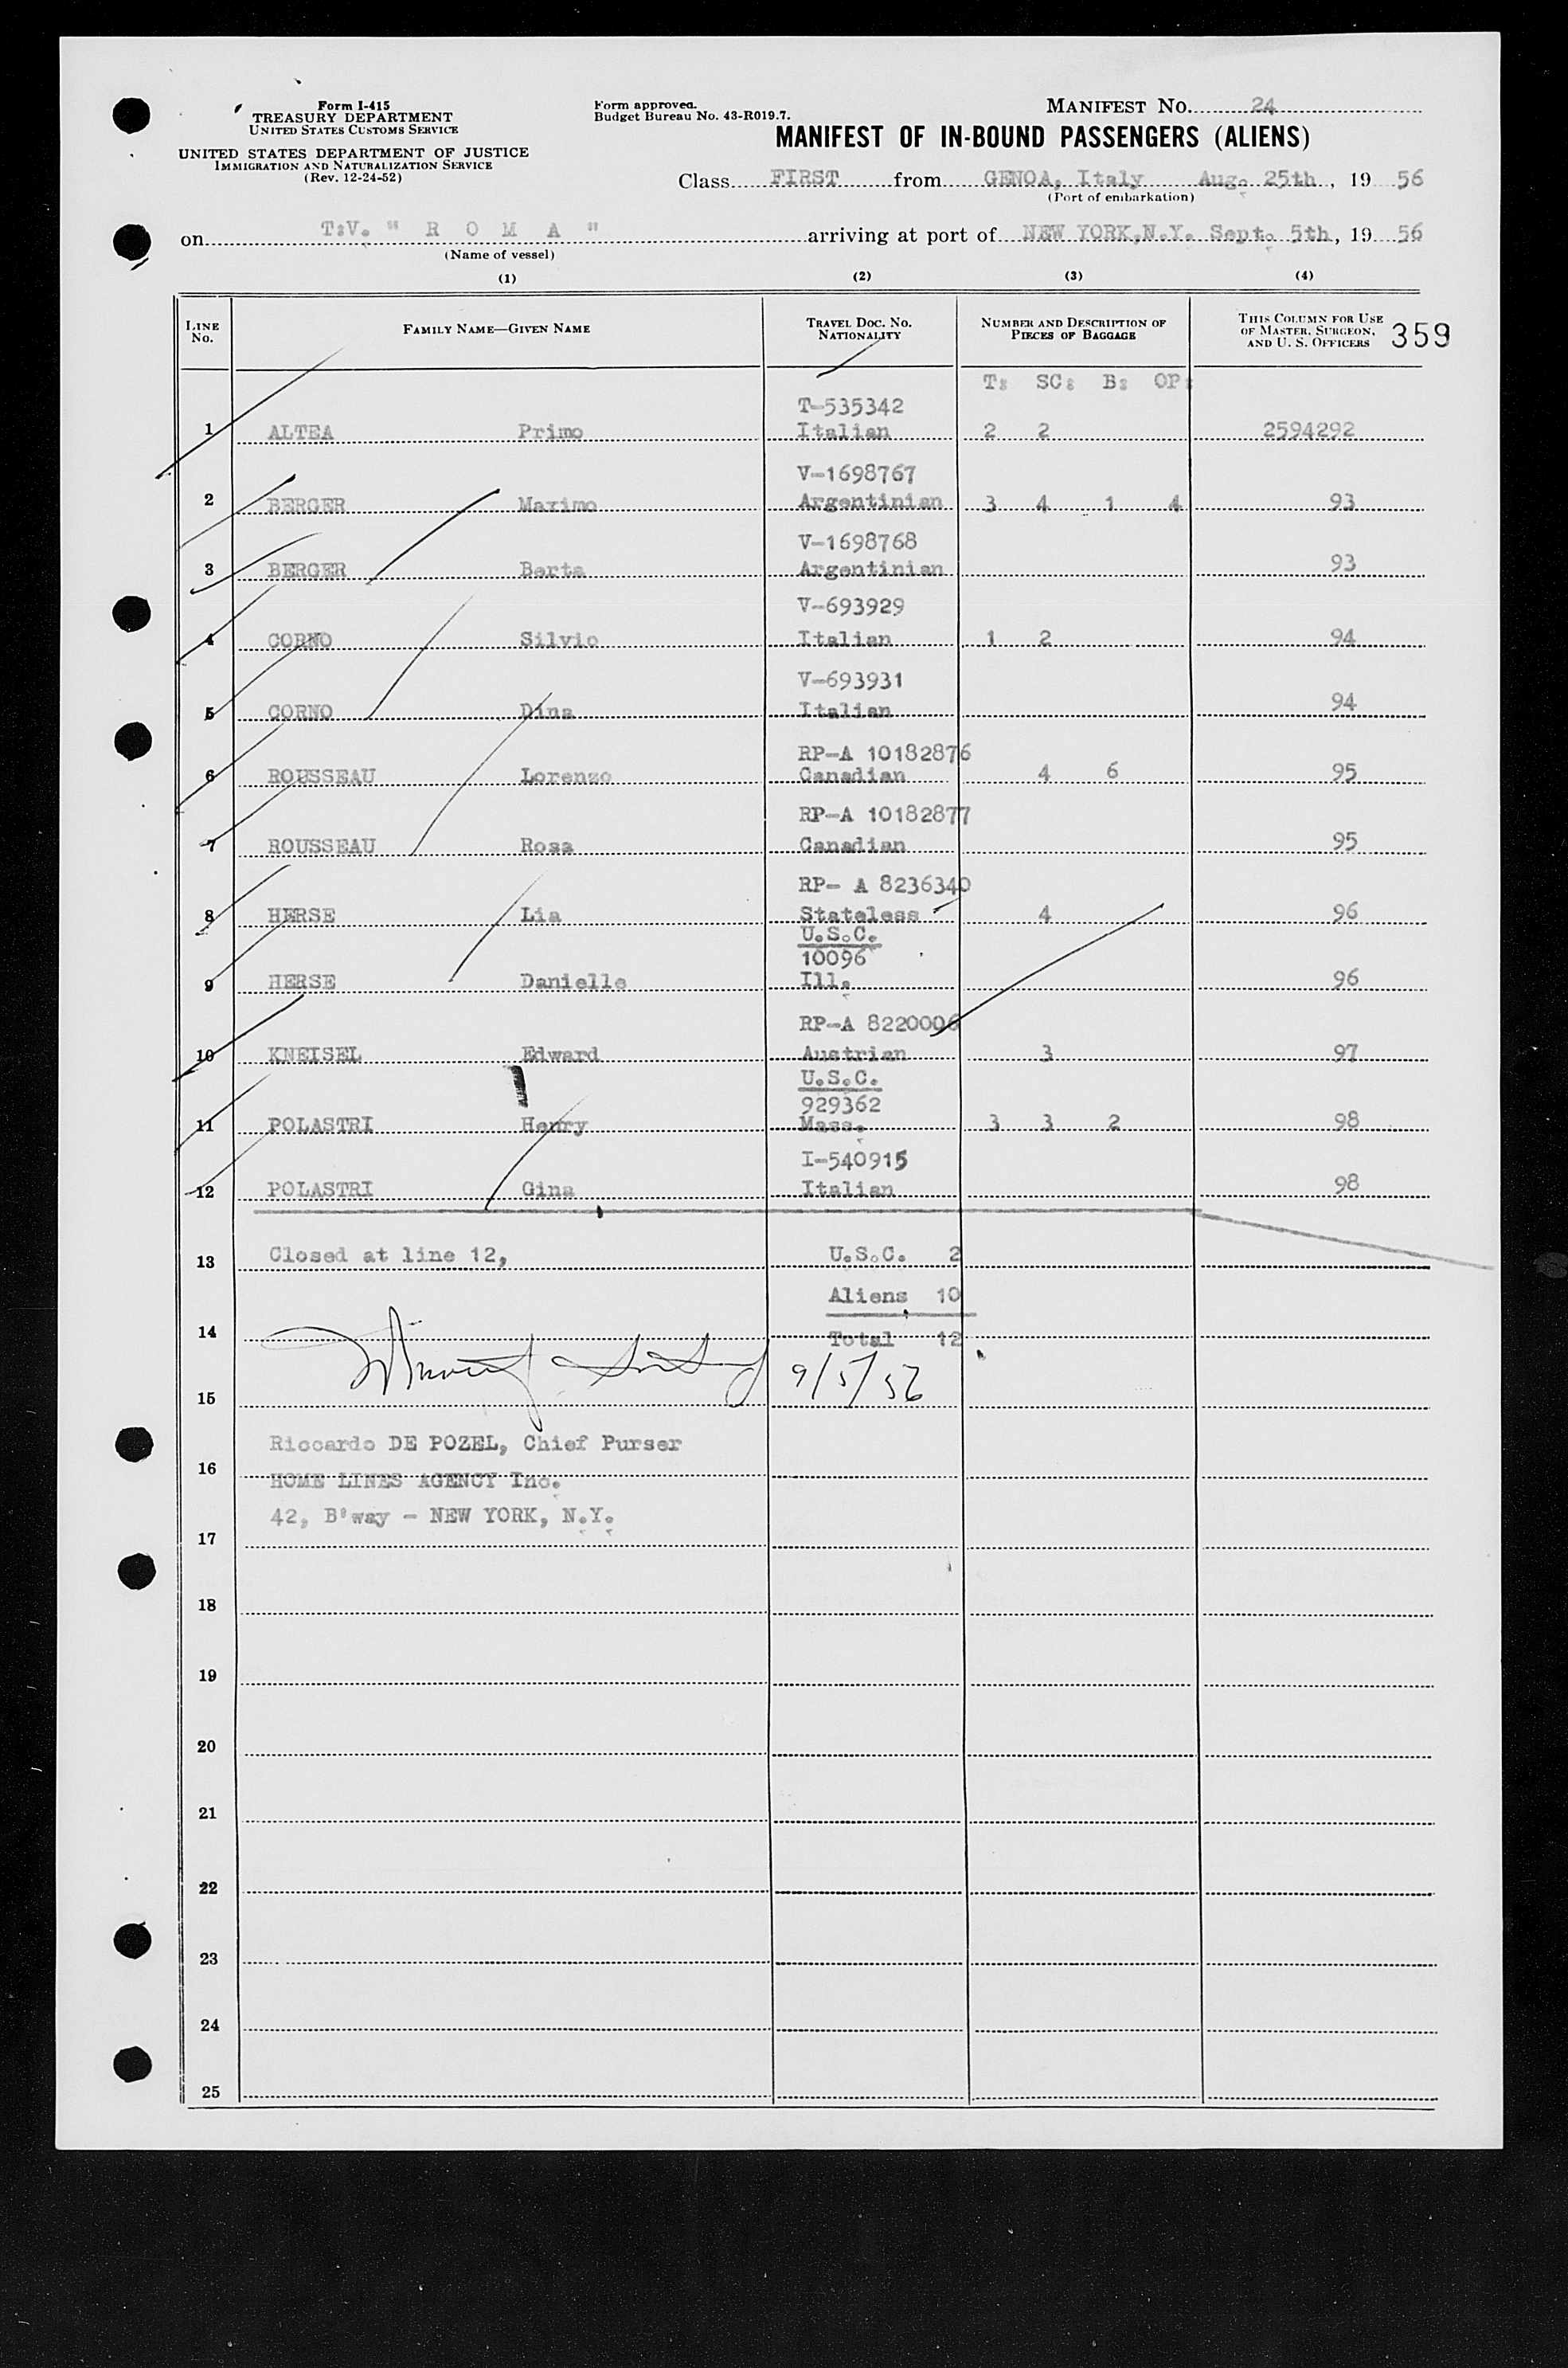 Form I-415
TREASURY DEPARTMENT
UNITED STATES CUSTOMS SERVICE
UNITED STATES DEPARTMENT OF JUSTICE
IMMIGRATION AND NATURALIZATION SERVICE
(Rev. 12-24-52)
Form approved.
Budget Bureau No. 43-R019.7.
MANIFEST NO. 24
MANIFEST OF IN-BOUND PASSENGERS (ALIENS)
Class FIRST from GENOA, Italy Aug. 25th, 19 56
(Port of embarkation)
on T:V. " R O M A " arriving at port of NEW YORK,N.Y. Sept. 5th, 19 56
(Name of vessel)
(1) (2) (3) (4)
LINE NO. FAMILY NAME—GIVEN NAME TRAVEL DOC. NO. NATIONALITY NUMBER AND DESCRIPTION OF PIECES OF BAGGAGE THIS COLUMN FOR USE OF MASTER, SURGEON, AND U. S. OFFICERS 359
T: SC: B: OP:
T-535342
1 ALTEA Primo Italian 2 2 2594292
V-1698767
2 BERGER Maximo Argentinian 3 4 1 4 93
V-1698768
3 BERGER Berta Argentinian 93
V-693929
4 CORNO Silvio Italian 1 2 94
V-693931
5 CORNO Dina Italian 94
RP-A 10182876
6 ROUSSEAU Lorenzo Canadian 4 6 95
RP-A 10182877
7 ROUSSEAU Rosa Canadian 95
RP- A 8236340
8 HERSE Lia Stateless 4 96
U.S.C.
10096
9 HERSE Danielle Ill. 96
RP-A 8220006
10 KNEISEL Edward Austrian 3 97
U.S.C.
929362
11 POLASTRI Henry Mass. 3 3 2 98
I-540915
12 POLASTRI Gina Italian 98
13 Closed at line 12, U.S.C. 2
Aliens 10
14 Total 12
9/5/56
15
Riccardo DE POZEL, Chief Purser
16 HOME LINES AGENCY Inc.
42, B'way - NEW YORK, N.Y.
17
18
19
20
21
22
23
24
25